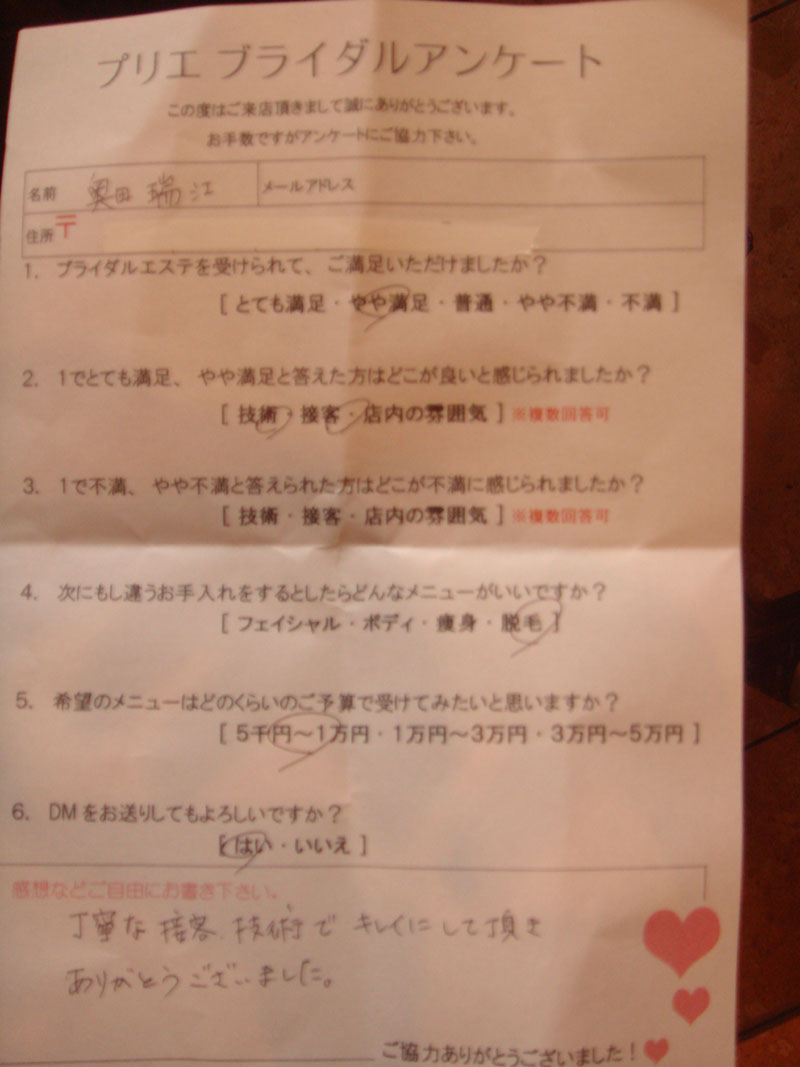 プリエ ブライダルアンケート
この度はご来店頂きまして誠にありがとうございます。
お手数ですがアンケートにご協力下さい。
名前 奥田 瑞江 メールアドレス
住所 〒
1. ブライダルエステを受けられて、ご満足いただけましたか？
[ とても満足・やや満足・普通・やや不満・不満 ]
2. 1でとても満足、やや満足と答えた方はどこが良いと感じられましたか？
[ 技術・接客・店内の雰囲気 ] ※複数回答可
3. 1で不満、やや不満と答えられた方はどこが不満に感じられましたか？
[ 技術・接客・店内の雰囲気 ] ※複数回答可
4. 次にもし違うお手入れをするとしたらどんなメニューがいいですか？
[ フェイシャル・ボディ・痩身・脱毛 ]
5. 希望のメニューはどのくらいのご予算で受けてみたいと思いますか？
[ 5千円～1万円・1万円～3万円・3万円～5万円 ]
6. DMをお送りしてもよろしいですか？
[ はい・いいえ ]
感想などご自由にお書き下さい。
丁寧な接客、技術でキレイにして頂き
ありがとうございました。
ご協力ありがとうございました！